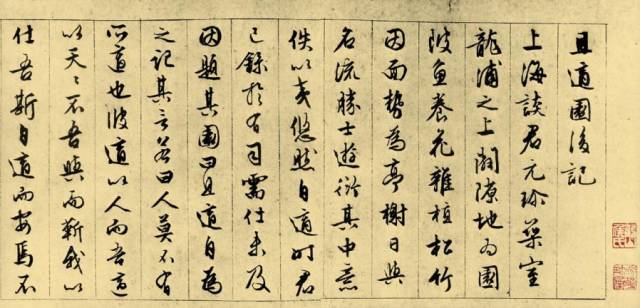 且適園後記
上海談君元珎築室
龍浦之上闢隙地為園
陂魚養花雜植松竹
因面勢為亭榭日與
名流勝士遊衍其中意
佚以 悠然自適時君
已錄於有司需仕未及
因題其園曰且適自為
之記其言若曰人莫不有
所適也彼適以人而吾適
以天〻不吾與而靳我以
仕吾斯自適而安焉不